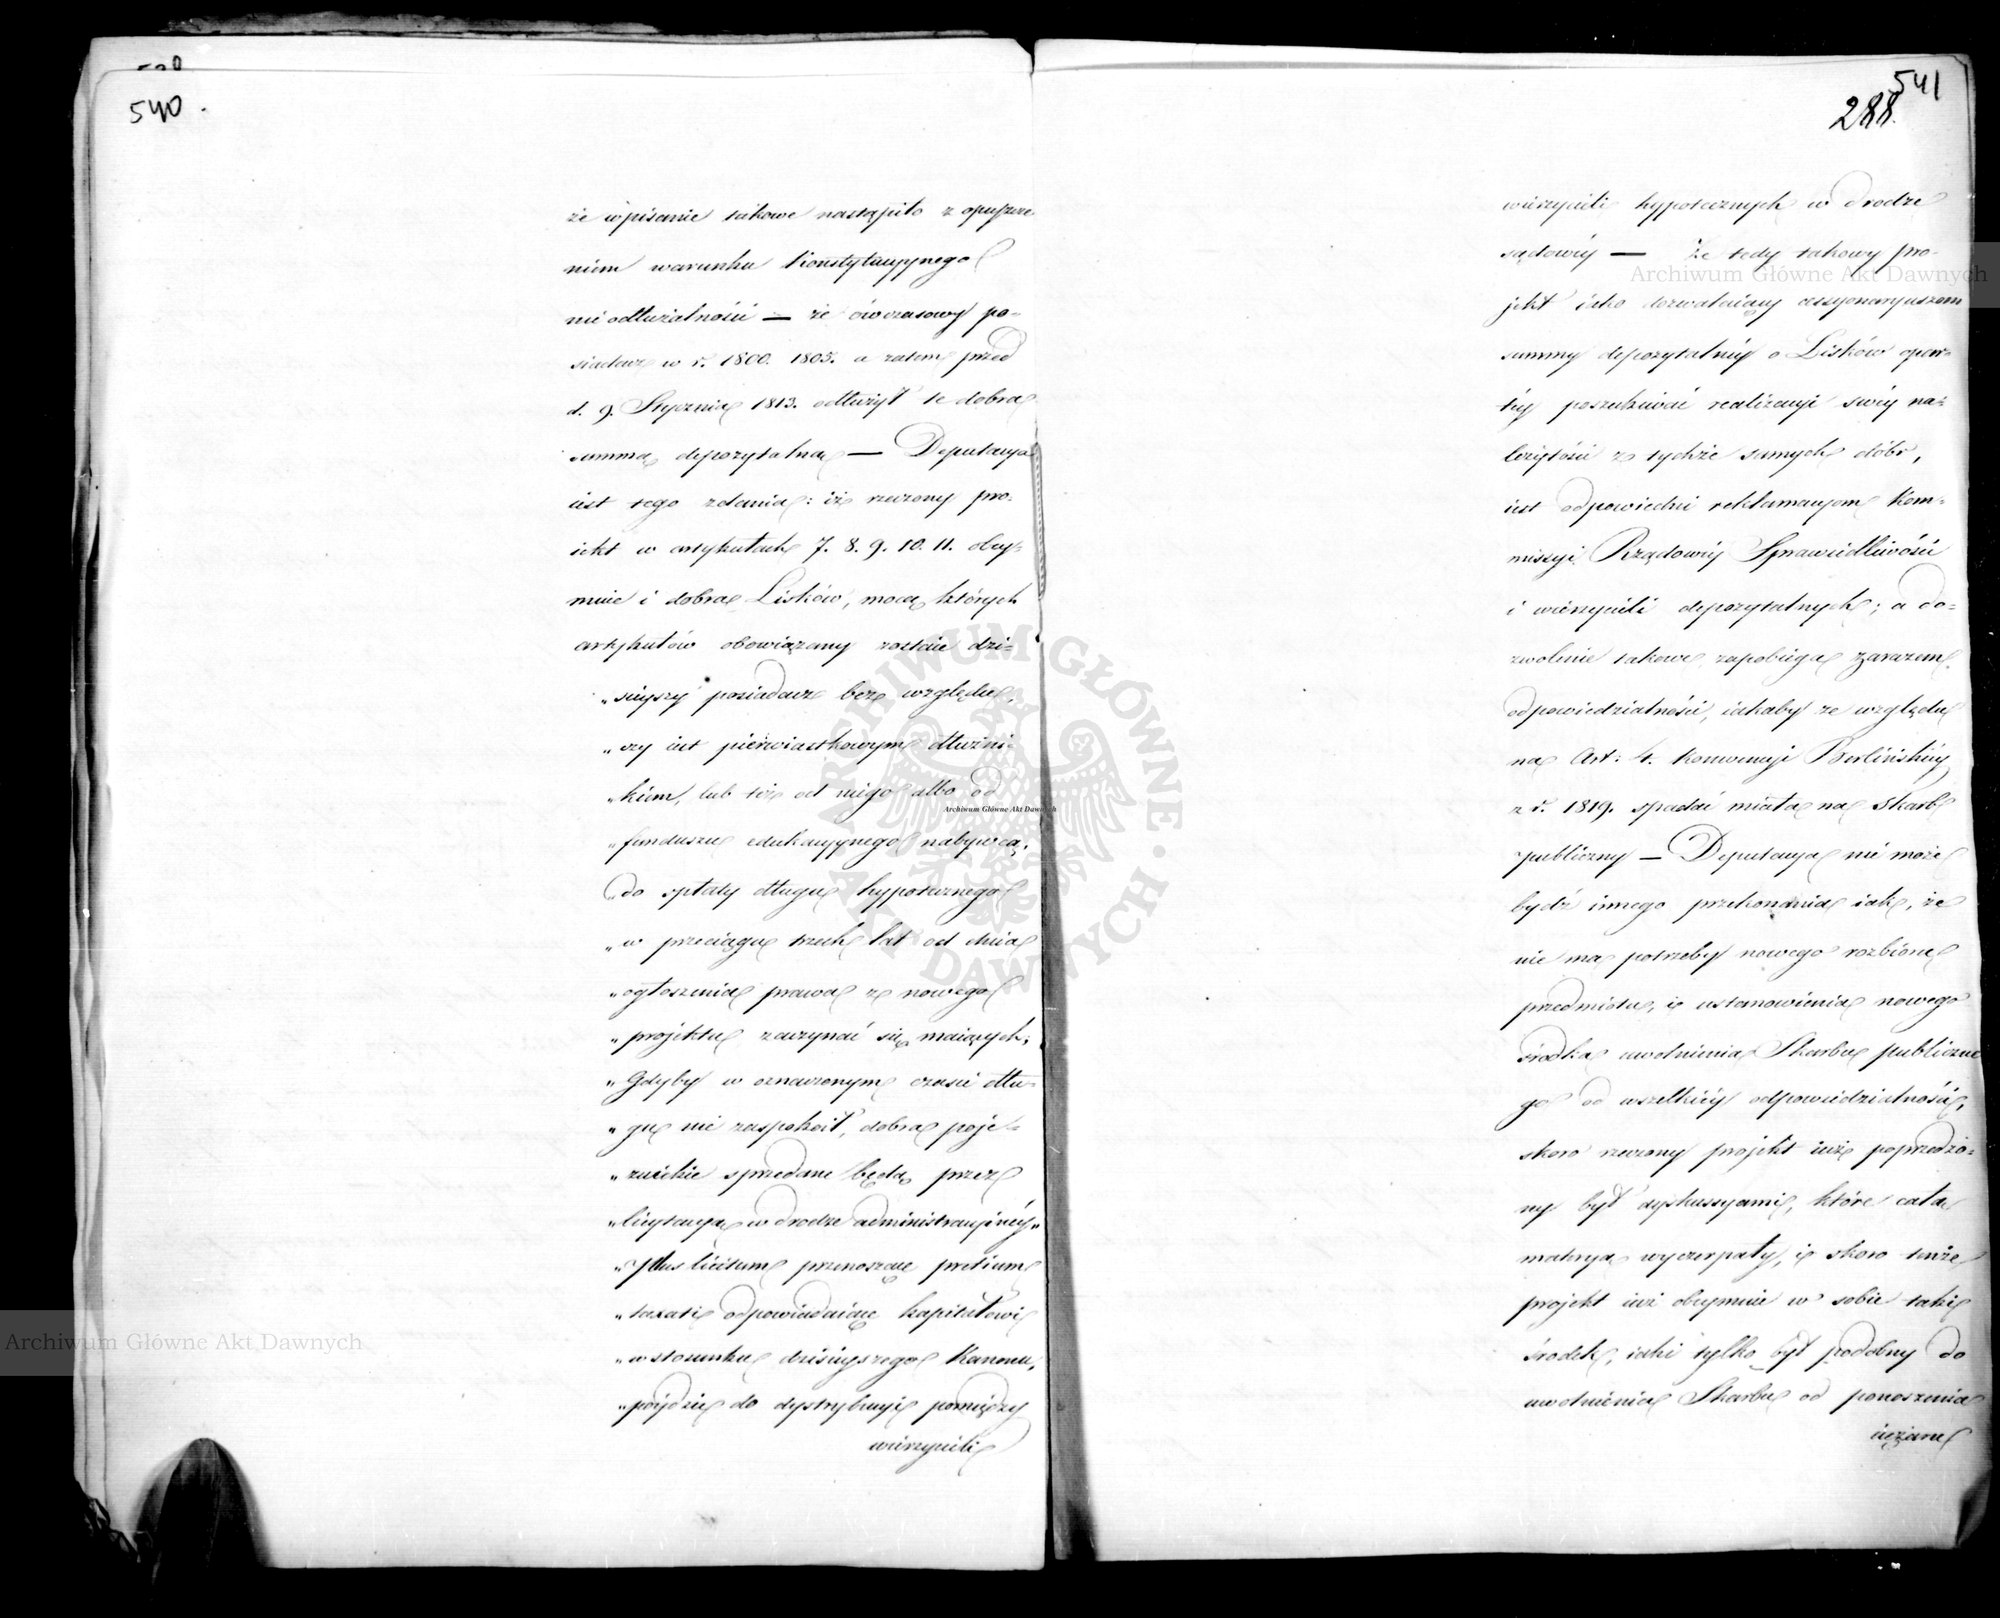 540.
że wpisanie takowe nastąpiło z opuszcze
niem warunku Konstytucyynego
nieodłużalności — że ówczasowy po-
siadacz w r. 1800. 1805. a zatem przed
d. 9. Stycznia 1813. odłużył te dobra
summą depozytalną — Deputacya
iest tego zdania: iż rzeczony pro-
iekt w artykułach 7. 8. 9. 10. 11. obey-
muie i dobra Lisków, mocą których
artykułów obowiązany zostaie dzi-
„sieyszy posiadacz bez względu,
„czy iest pierwiastkowym dłużni-
„kiem, lub też od niego albo od
„funduszu edukacyynego nabywcą,
„do spłaty długu hypotecznego
„w przeciągu trzech lat od dnia
„ogłoszenia prawa z nowego
„projektu zaczynać się maiących;
„Gdyby w oznaczonym czasie dłu-
„gu nie zaspokoił, dobra poje-
„zuickie sprzedane będą przez
„licytacyą w drodze administracyiney„
„Plus licitum przenoszące pretium
„taxati odpowiadaiące kapitałowi
„w stosunku dzisieyszego Kanonu,
„póydzie do dystrybucyi pomiędzy
wierzycieli
541
288.
wierzycieli hypotecznych w drodze
sądowéy — Że tedy takowy pro-
jekt iako dozwalaiący cessyonaryuszom
summy depozytalnéy o Lisków opar-
téy poszukiwać realizacyi swéy na-
leżytości z tychże samych dóbr,
iest odpowiedni reklamacyom Kom-
missyi Rządowéy Sprawiedliwości
i wierzycieli depozytalnych; a do-
zwolenie takowe zapobiega zarazem
odpowiedzialności, iakaby ze względu
na Art: 4. Konwencyi Berlińskiéy
z r. 1819. spadać miała na Skarb
publiczny — Deputacya nie może
bydź innego przekonania iak, że
nie ma potrzeby nowego rozbioru
przedmiotu, i ustanowienia nowego
środka uwolnienia Skarbu publiczne
go od wszelkiéy odpowiedzialności,
skoro rzeczony projekt iuż poprzedzo-
ny był dyskussyami, które całą
materyą wyczerpały, i skoro tenże
projekt iuż obeymuie w sobie taki
środek, iaki tylko był podobny do
uwolnienia Skarbu od ponoszenia
ciężaru
Archiwum Główne Akt Dawnych
Archiwum Główne Akt Dawnych
Archiwum Główne Akt Dawnych
ARCHIWUM GŁÓWNE · AKT DAWNYCH ·